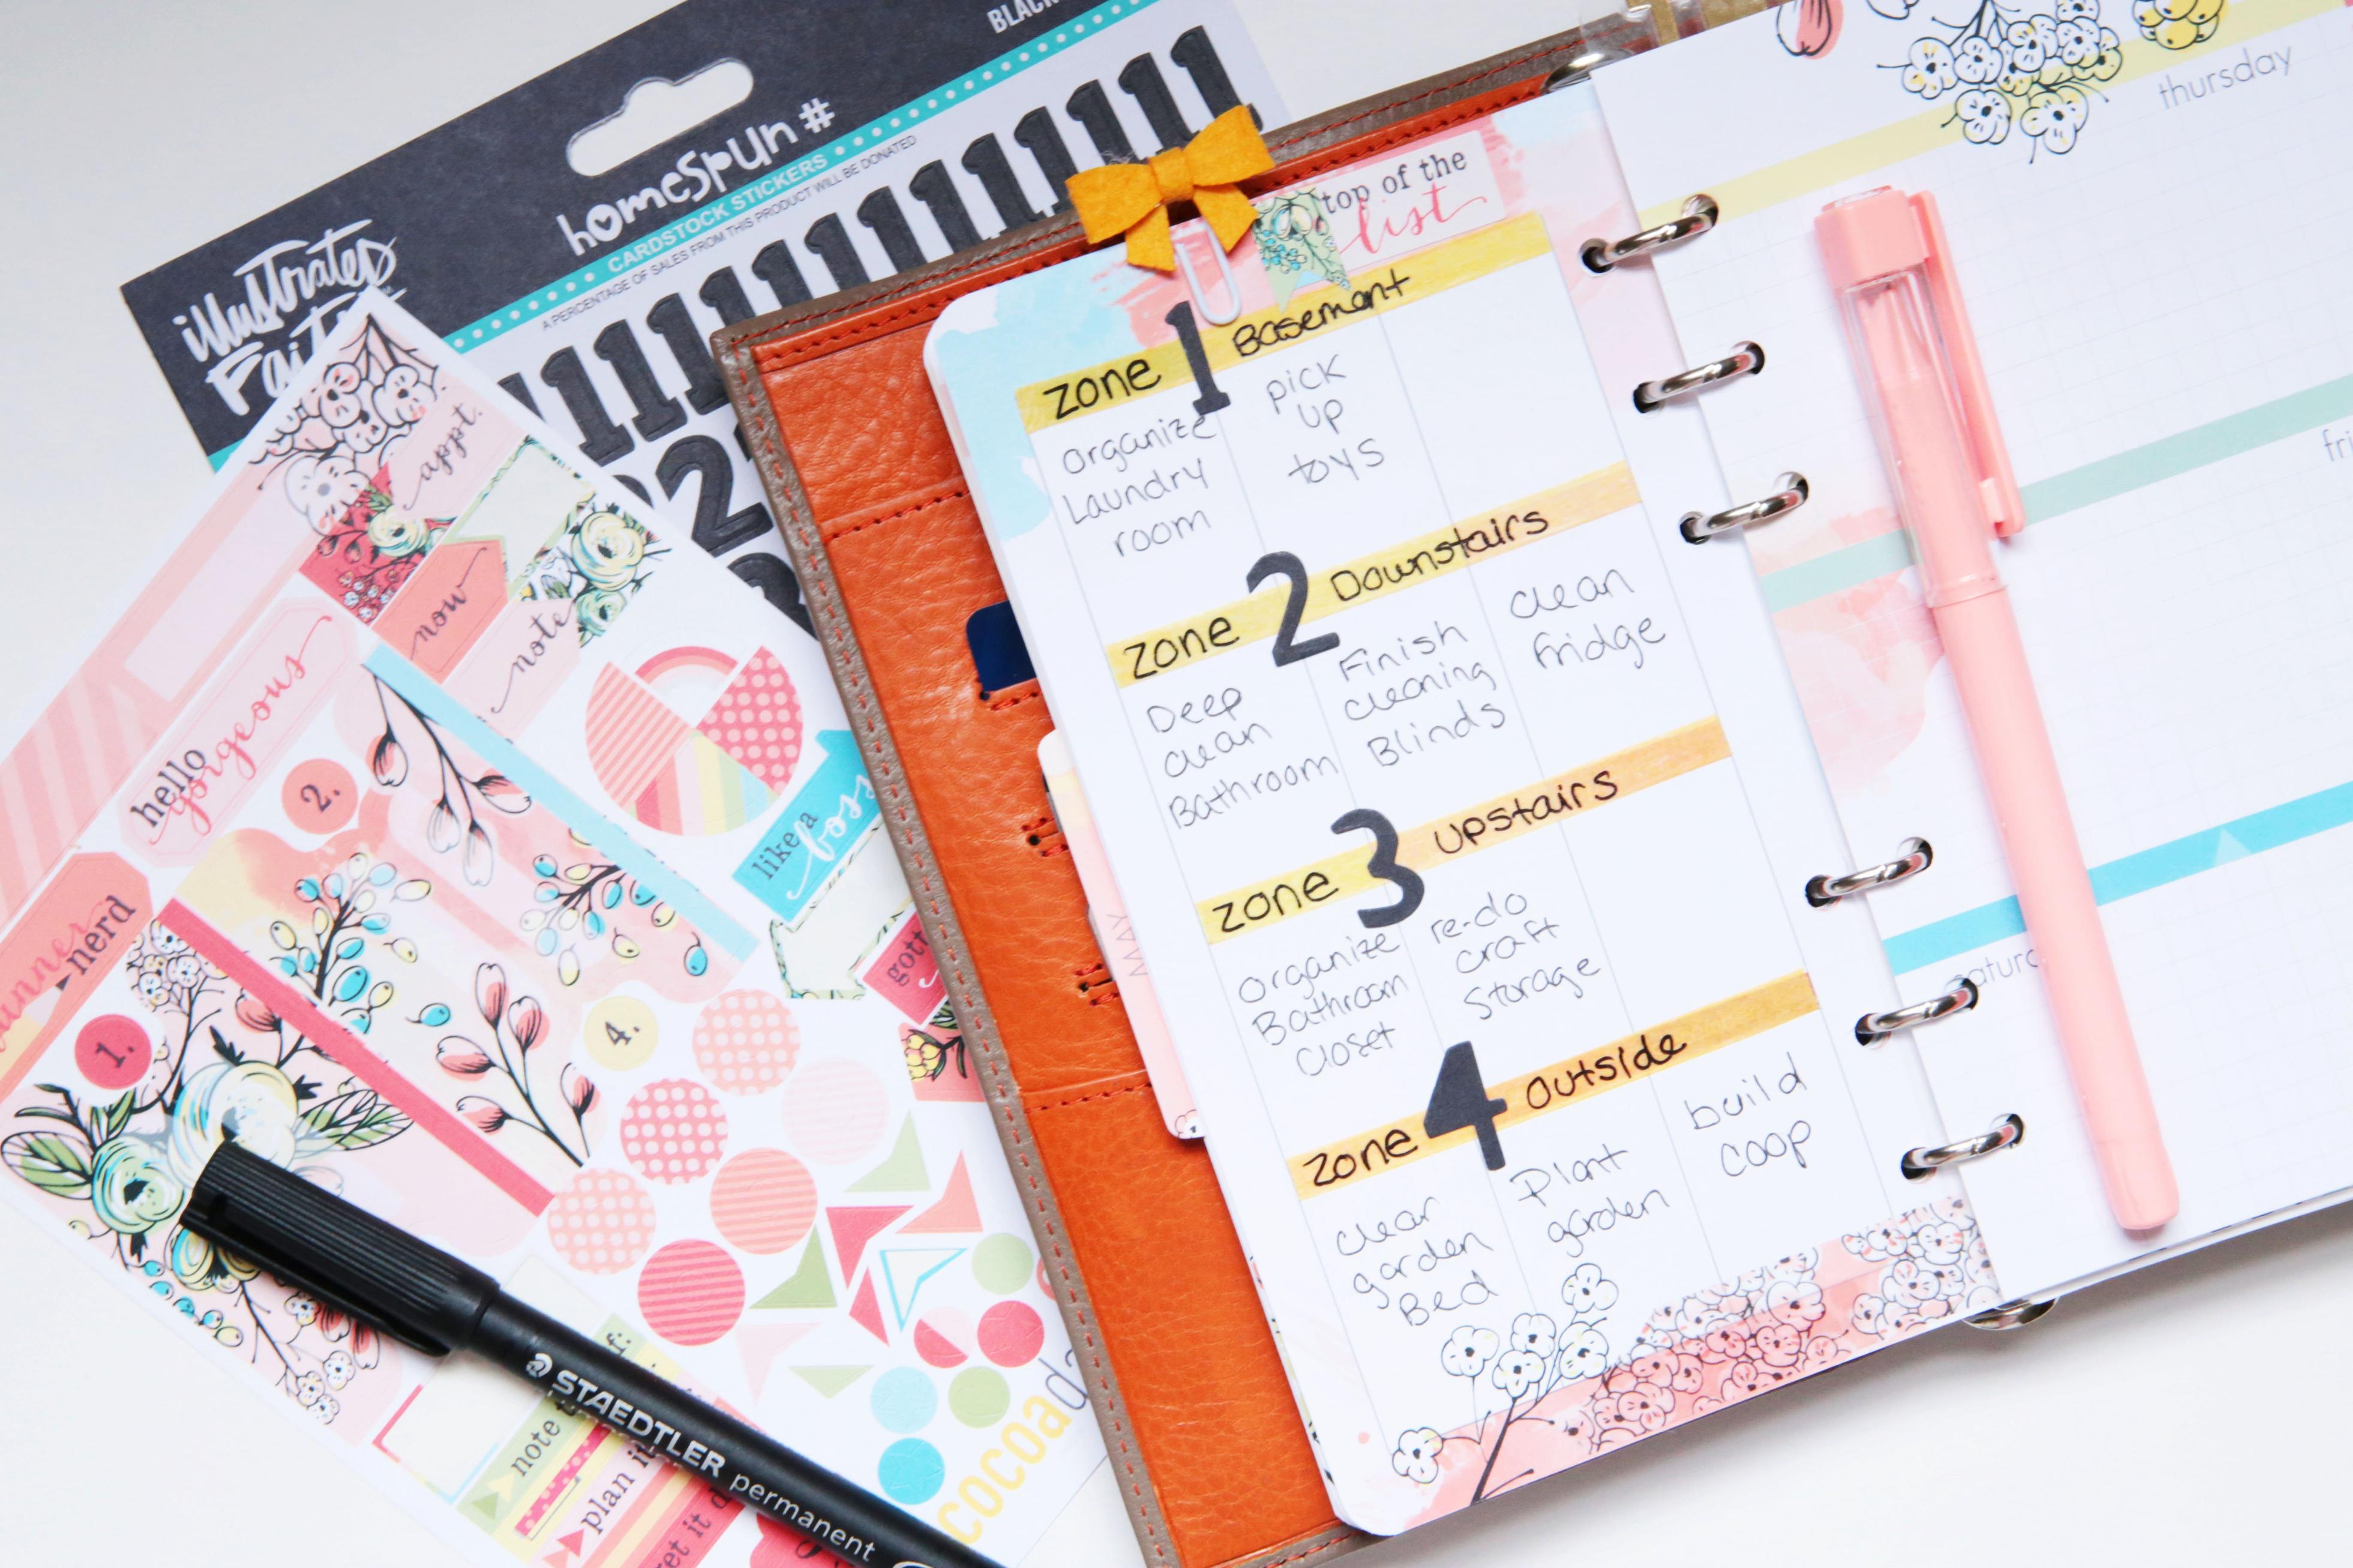 BLACK
homespun #
CARDSTOCK STICKERS
A PERCENTAGE OF SALES FROM THIS PRODUCT WILL BE DONATED
illustrated
Faith
1 1 1 1 1 1 1 1 1 1 1 1 1
2 2
appt.
now
note
hello
gorgeous
2.
like a
boss
nerd
1.
4.
note
plan it
it
cocoa
STAEDTLER permanent
MAY
top of the
list
zone 1 Basemant
organize
Laundry
room
pick
up
toys
zone 2 Downstairs
Deep
clean
Bathroom
Finish
cleaning
Blinds
clean
fridge
zone 3 upstairs
organize
Bathroom
closet
re-do
craft
storage
zone 4 outside
clear
garden
Bed
Plant
garden
build
coop
thursday
fri
satur